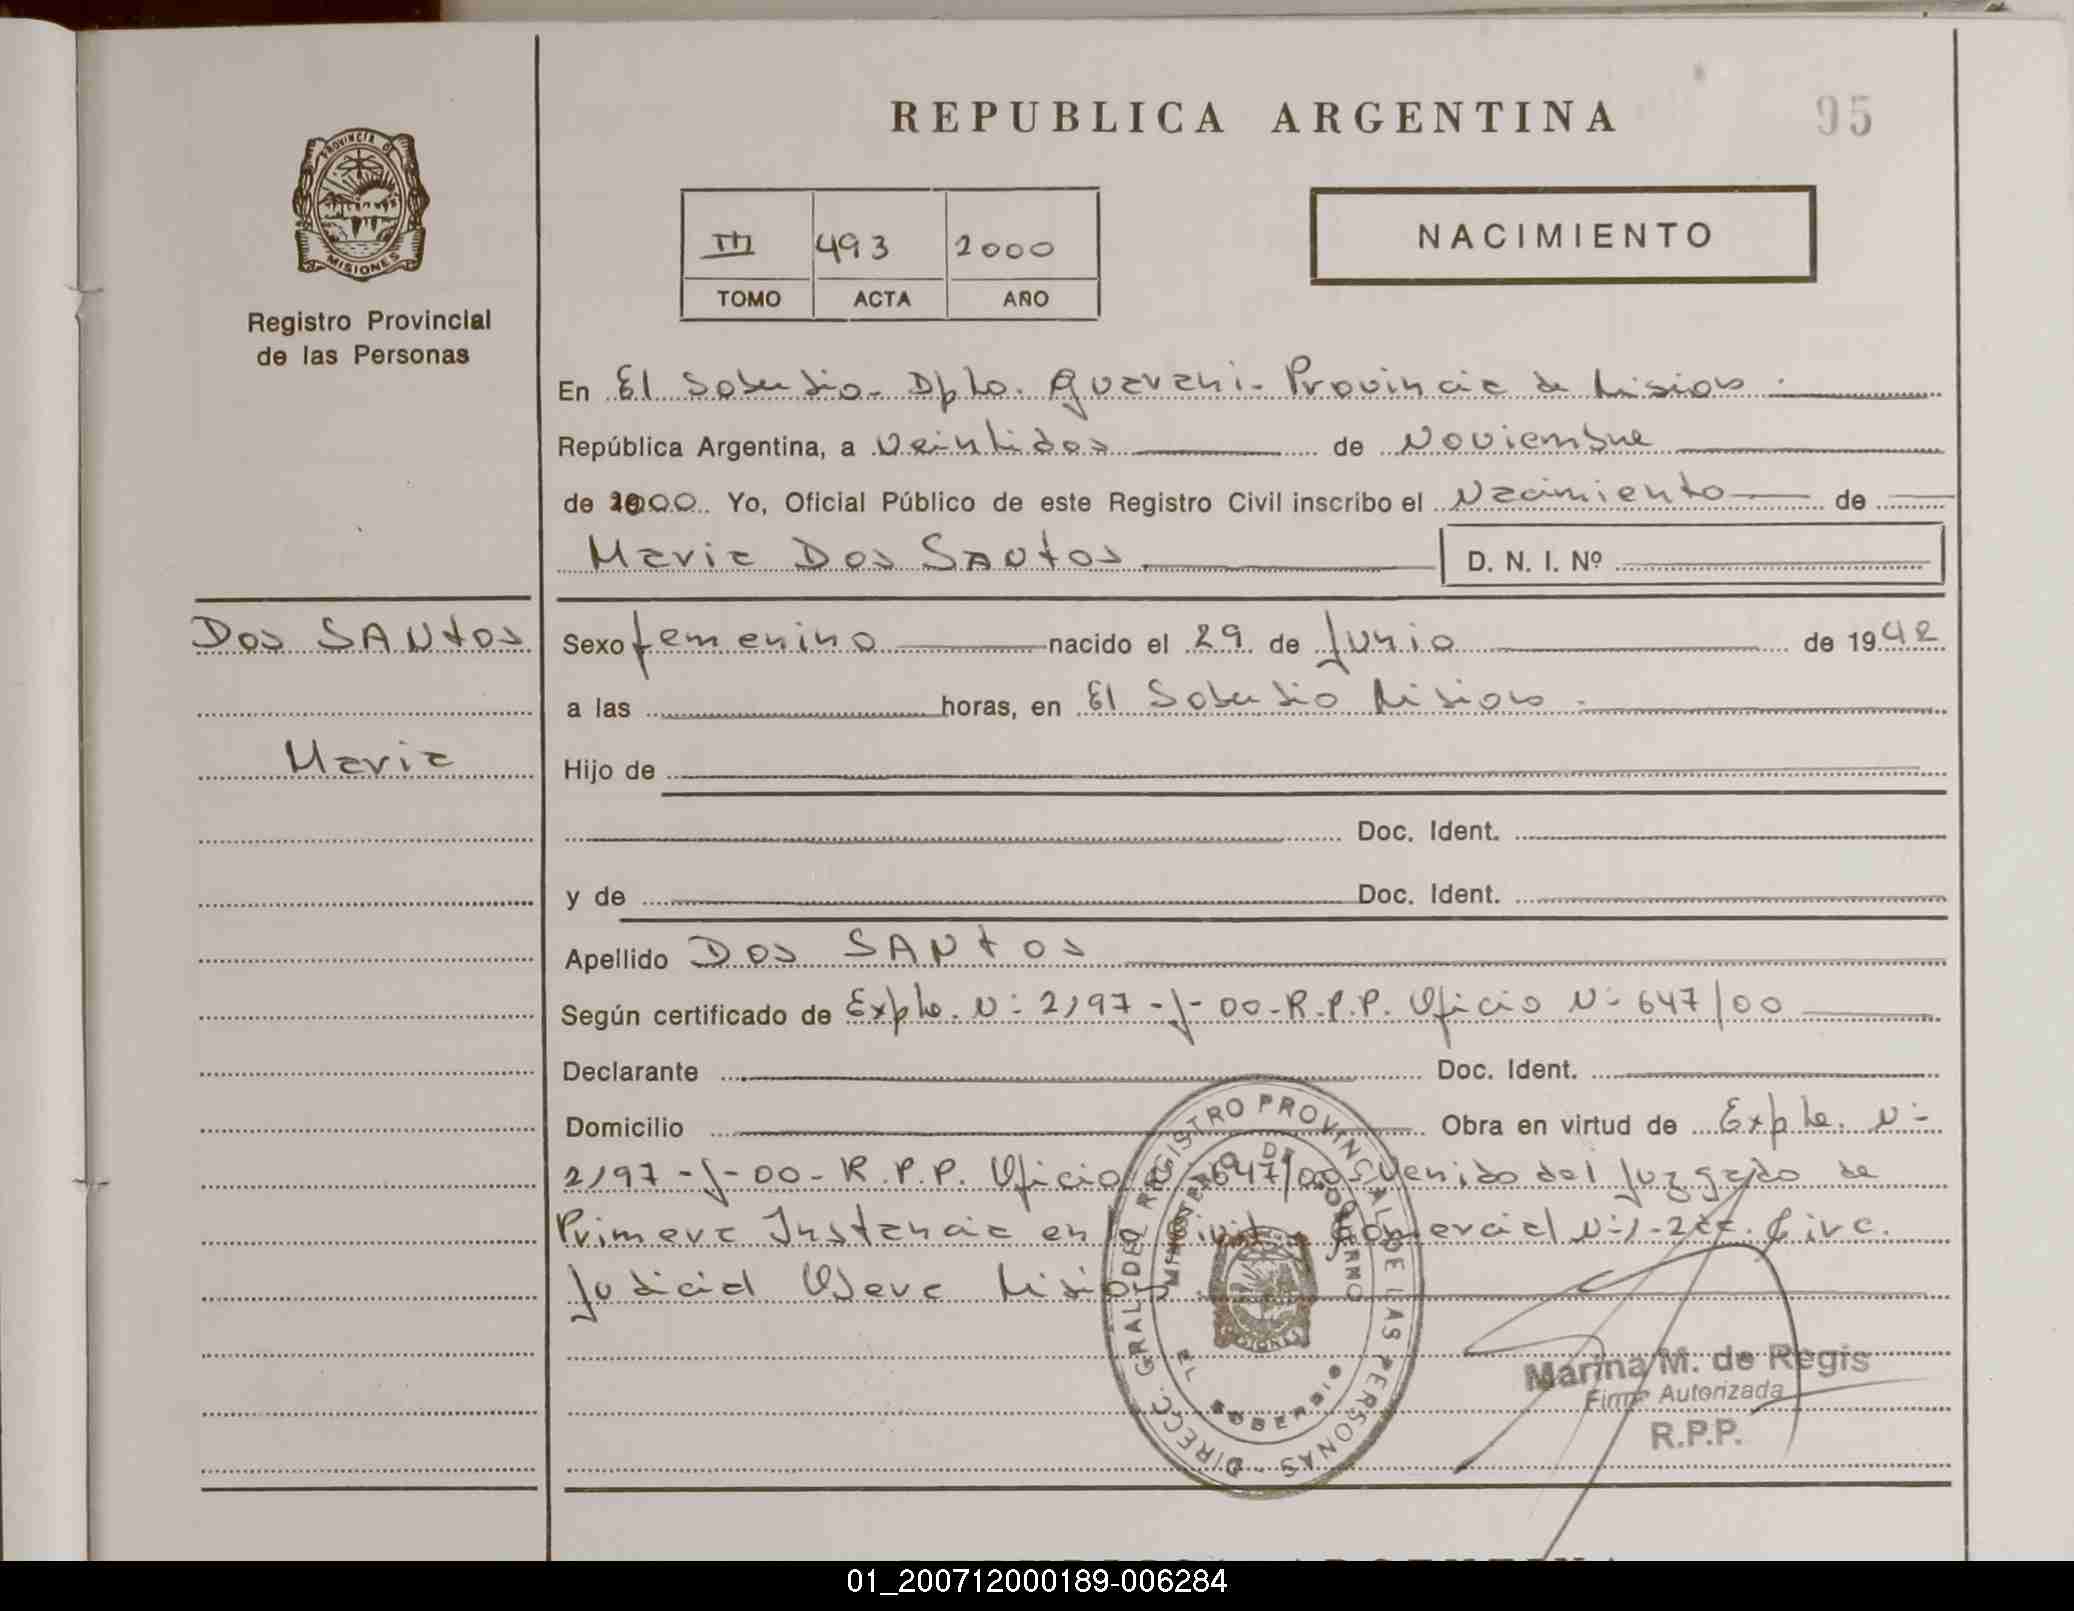 REPUBLICA ARGENTINA
95
PROVINCIA D
MISIONES
Registro Provincial
de las Personas
III 493 2000
TOMO ACTA AÑO
NACIMIENTO
En El Soberbio - Dpto. Guarani - Provincia de Misiones.
República Argentina, a Veintidos de Noviembre
de 2000 Yo, Oficial Público de este Registro Civil inscribo el Nacimiento de
Maria Dos Santos D. N. I. Nº
Dos SANtos
Maria
Sexo femenino nacido el 29 de Junio de 1942
a las horas, en El Soberbio Misiones.
Hijo de
Doc. Ident.
y de Doc. Ident.
Apellido Dos SANtos
Según certificado de Expte. Nº 2197-J-00-R.P.P. Oficio Nº 647/00
Declarante Doc. Ident.
Domicilio Obra en virtud de Expte. Nº
2197-J-00-R.P.P. Oficio Nº 647/00 venido del Juzgado de
Primera Instancia en lo Civil y Comercial Nº 1-2da. Circ.
Judicial Obera Misiones
DIRECC. GRAL. DEL REGISTRO PROVINCIAL DE LAS PERSONAS
MINISTERIO DE GOBIERNO
EL SOBERBIO
Marina M. de Regis
Firma Autorizada
R.P.P.
01_200712000189-006284